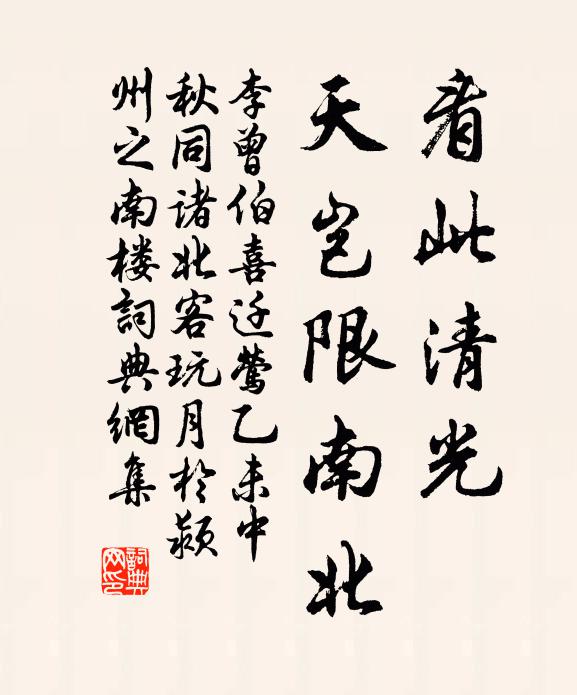 看此清光
天岂限南北
李曾伯喜迁莺乙未中
秋同诸北客玩月於颍
州之南楼詞典網集
詞典
网印